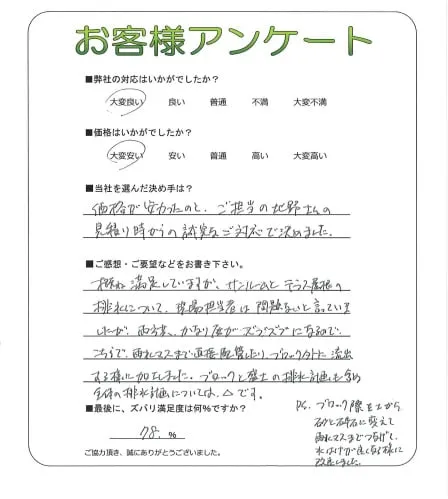 お客様アンケート
■弊社の対応はいかがでしたか？
大変良い 良い 普通 不満 大変不満
■価格はいかがでしたか？
大変安い 安い 普通 高い 大変高い
■当社を選んだ決め手は？
価格が安かったのと、ご担当の北野さんの
見積り時からの誠実なご対応で決めました。
■ご感想・ご要望などをお書き下さい。
概ね満足していますが、サンルームとテラス屋根の
排水について、現場担当者は問題ないと言っていま
したが、雨の、かなり庭がズブズブになるので、
こちらで、雨水マスまで直接配管したり、ブロック外に流出
する様に加工しました。ブロックと盛土の排水計画も含め
全体の排水計画については、△です。
■最後に、ズバリ満足度は何％ですか？
78.％
ご協力頂き、誠にありがとうございました。
P.S. ブロック際を土から
砂と砕石に変えて
雨水マスまでつなげて、
水はけが良くなる様に
改良しました。